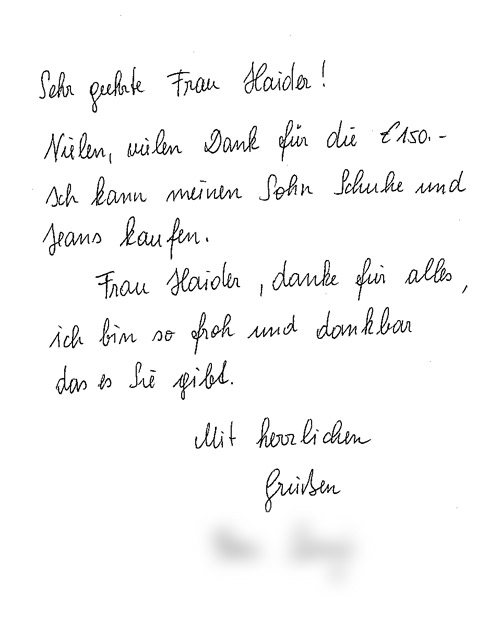 Sehr geehrte Frau Haider!
Vielen, vielen Dank für die € 150.-
Ich kann meinen Sohn Schuhe und
Jeans kaufen.
Frau Haider, danke für alles,
ich bin so froh und dankbar
das es Sie gibt.
Mit herzlichen
Grüßen